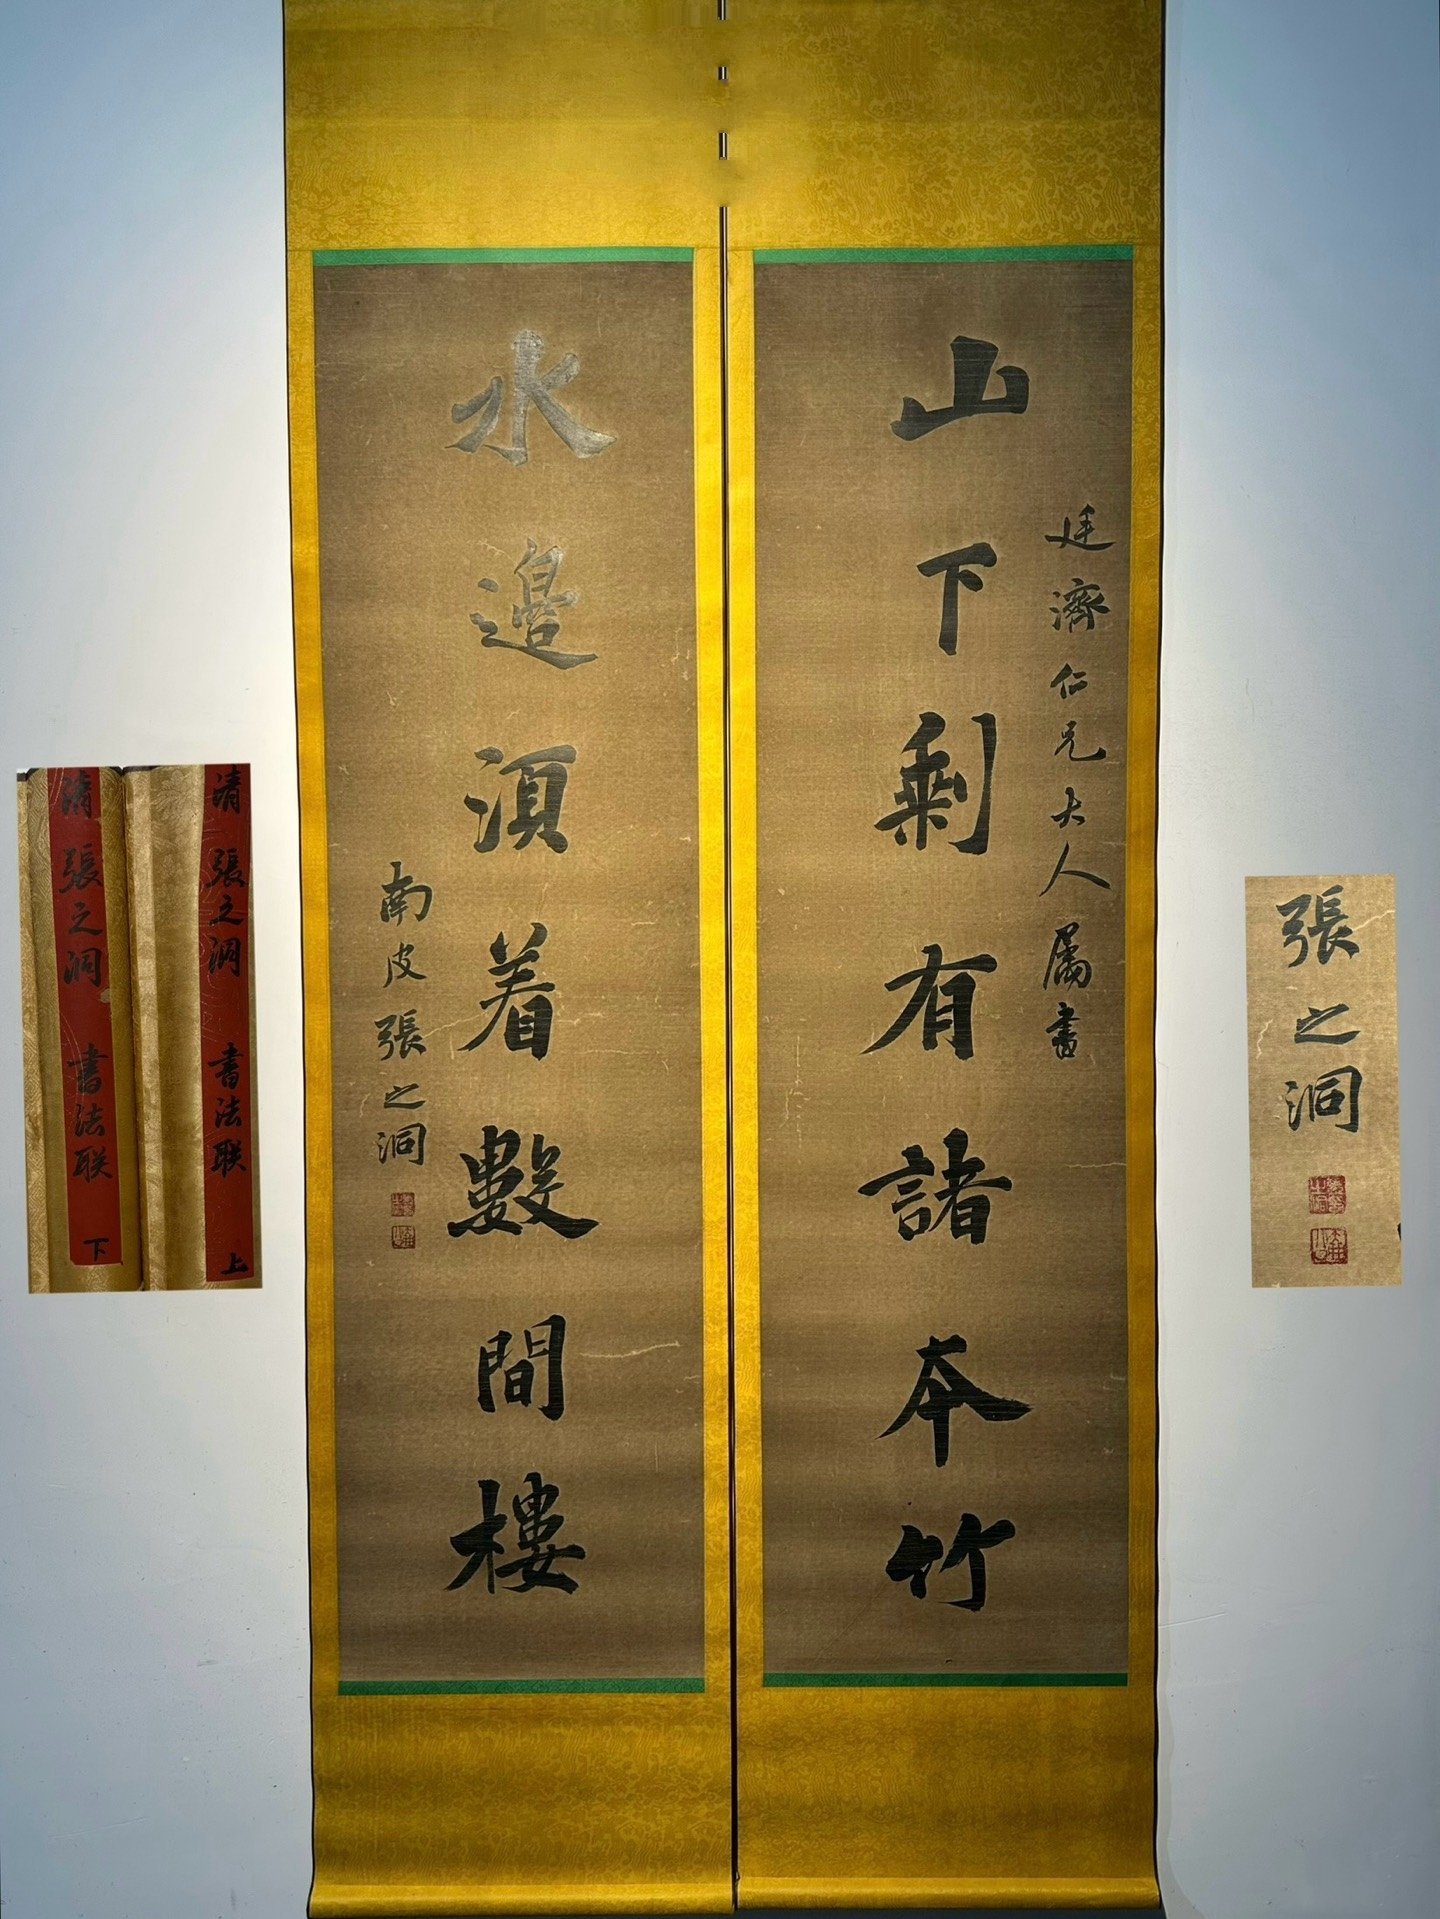 山下剩有諸本竹
廷濟仁兄大人屬書
水邊須着數間樓
南皮張之洞
清 張之洞 書法联 上
清 張之洞 書法联 下
張之洞